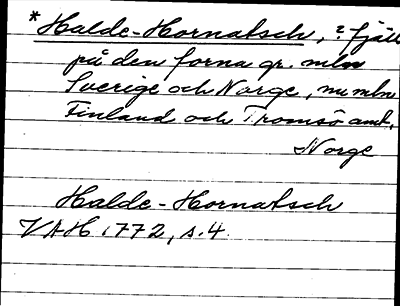 *Halde-Hornatsch, ? fjäll
på den forna gr. mlm
Sverige och Norge, nu mlm
Finland och Tromsö amt,
Norge
Halde-Hornatsch
VAH 1772, s. 4